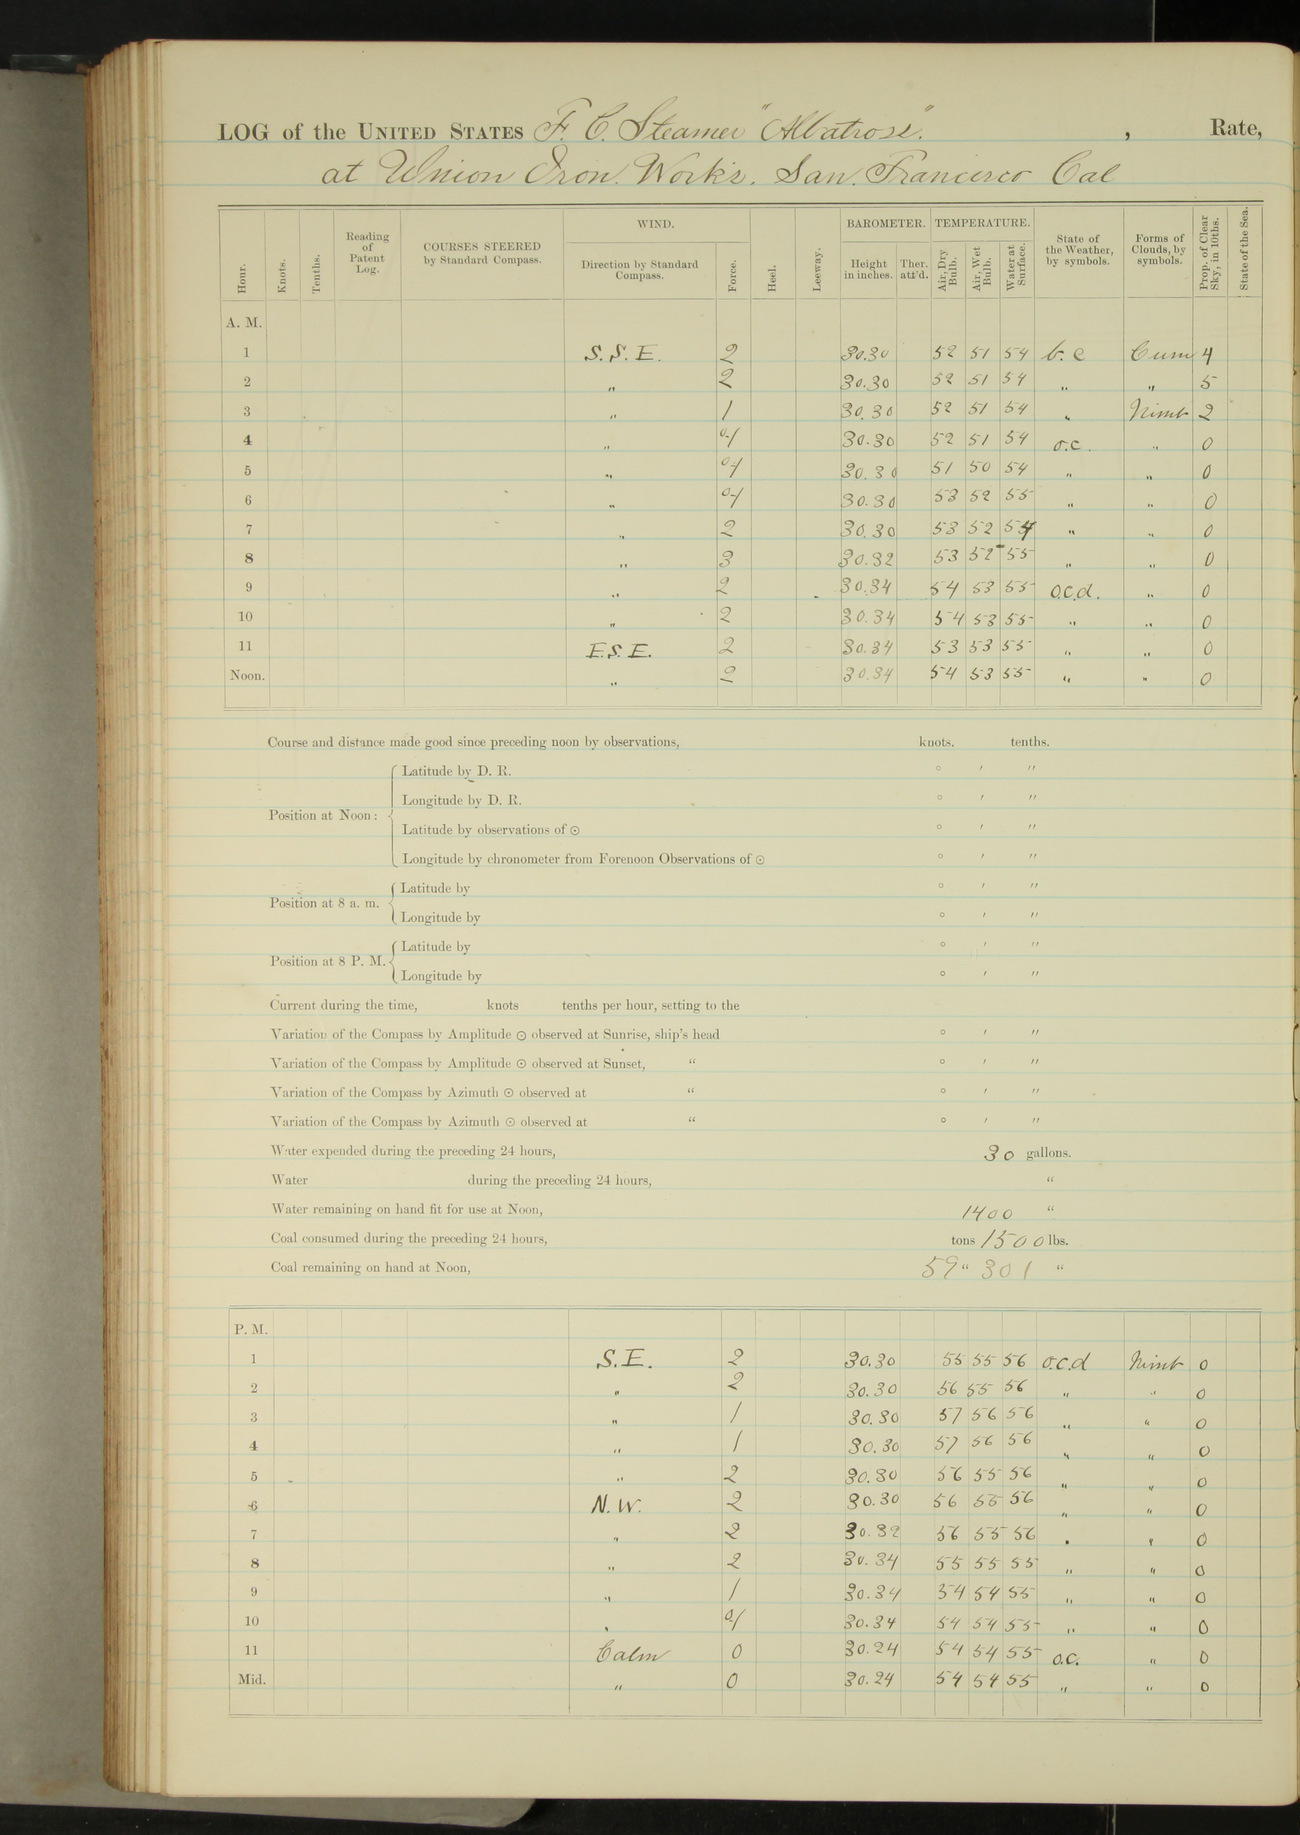 LOG of the UNITED STATES F. C. Steamer "Albatross". , Rate,
at Union Iron Works. San. Francisco Cal
Hour. Knots. Tenths. Reading of Patent Log. COURSES STEERED by Standard Compass. WIND. Direction by Standard Compass. Force. Heel. Leeway. BAROMETER. Height in inches. Ther. att'd. TEMPERATURE. Air, Dry Bulb. Air, Wet Bulb. Water at Surface. State of the Weather, by symbols. Forms of Clouds, by symbols. Prop. of Clear Sky, in 10ths. State of the Sea.
A. M.
1 S. S. E. 2 30.30 52 51 54 b. c Cum 4
2 " 2 30.30 52 51 54 " " 5
3 " 1 30.30 52 51 54 " Nimb 2
4 " 0-1 30.30 52 51 54 o.c. " 0
5 " 0-1 30.30 51 50 54 " " 0
6 " 0-1 30.30 53 52 55 " " 0
7 " 2 30.30 53 52 54 " " 0
8 " 3 30.32 53 52 55 " " 0
9 " 2 30.34 54 53 55 o.c.d. " 0
10 " 2 30.34 54 53 55 " " 0
11 E.S.E. 2 30.34 53 53 55 " " 0
Noon. " 2 30.34 54 53 55 " " 0
Course and distance made good since preceding noon by observations, knots. tenths.
Position at Noon: Latitude by D. R. ° ′ ″
Longitude by D. R. ° ′ ″
Latitude by observations of ☉ ° ′ ″
Longitude by chronometer from Forenoon Observations of ☉ ° ′ ″
Position at 8 a. m. Latitude by ° ′ ″
Longitude by ° ′ ″
Position at 8 P. M. Latitude by ° ′ ″
Longitude by ° ′ ″
Current during the time, knots tenths per hour, setting to the
Variation of the Compass by Amplitude ☉ observed at Sunrise, ship's head ° ′ ″
Variation of the Compass by Amplitude ☉ observed at Sunset, " ° ′ ″
Variation of the Compass by Azimuth ☉ observed at " ° ′ ″
Variation of the Compass by Azimuth ☉ observed at " ° ′ ″
Water expended during the preceding 24 hours, 30 gallons.
Water during the preceding 24 hours, "
Water remaining on hand fit for use at Noon, 1400 "
Coal consumed during the preceding 24 hours, tons 1500 lbs.
Coal remaining on hand at Noon, 59 " 301 "
P. M.
1 S. E. 2 30.30 55 55 56 o.c.d Nimb 0
2 " 2 30.30 56 55 56 " " 0
3 " 1 30.30 57 56 56 " " 0
4 " 1 30.30 57 56 56 " " 0
5 " 2 30.30 56 55 56 " " 0
6 N. W. 2 30.30 56 55 56 " " 0
7 " 2 30.32 56 55 56 " " 0
8 " 2 30.34 55 55 55 " " 0
9 " 1 30.34 54 54 55 " " 0
10 " 0-1 30.34 54 54 55 " " 0
11 Calm 0 30.24 54 54 55 o.c. " 0
Mid. " 0 30.24 54 54 55 " " 0